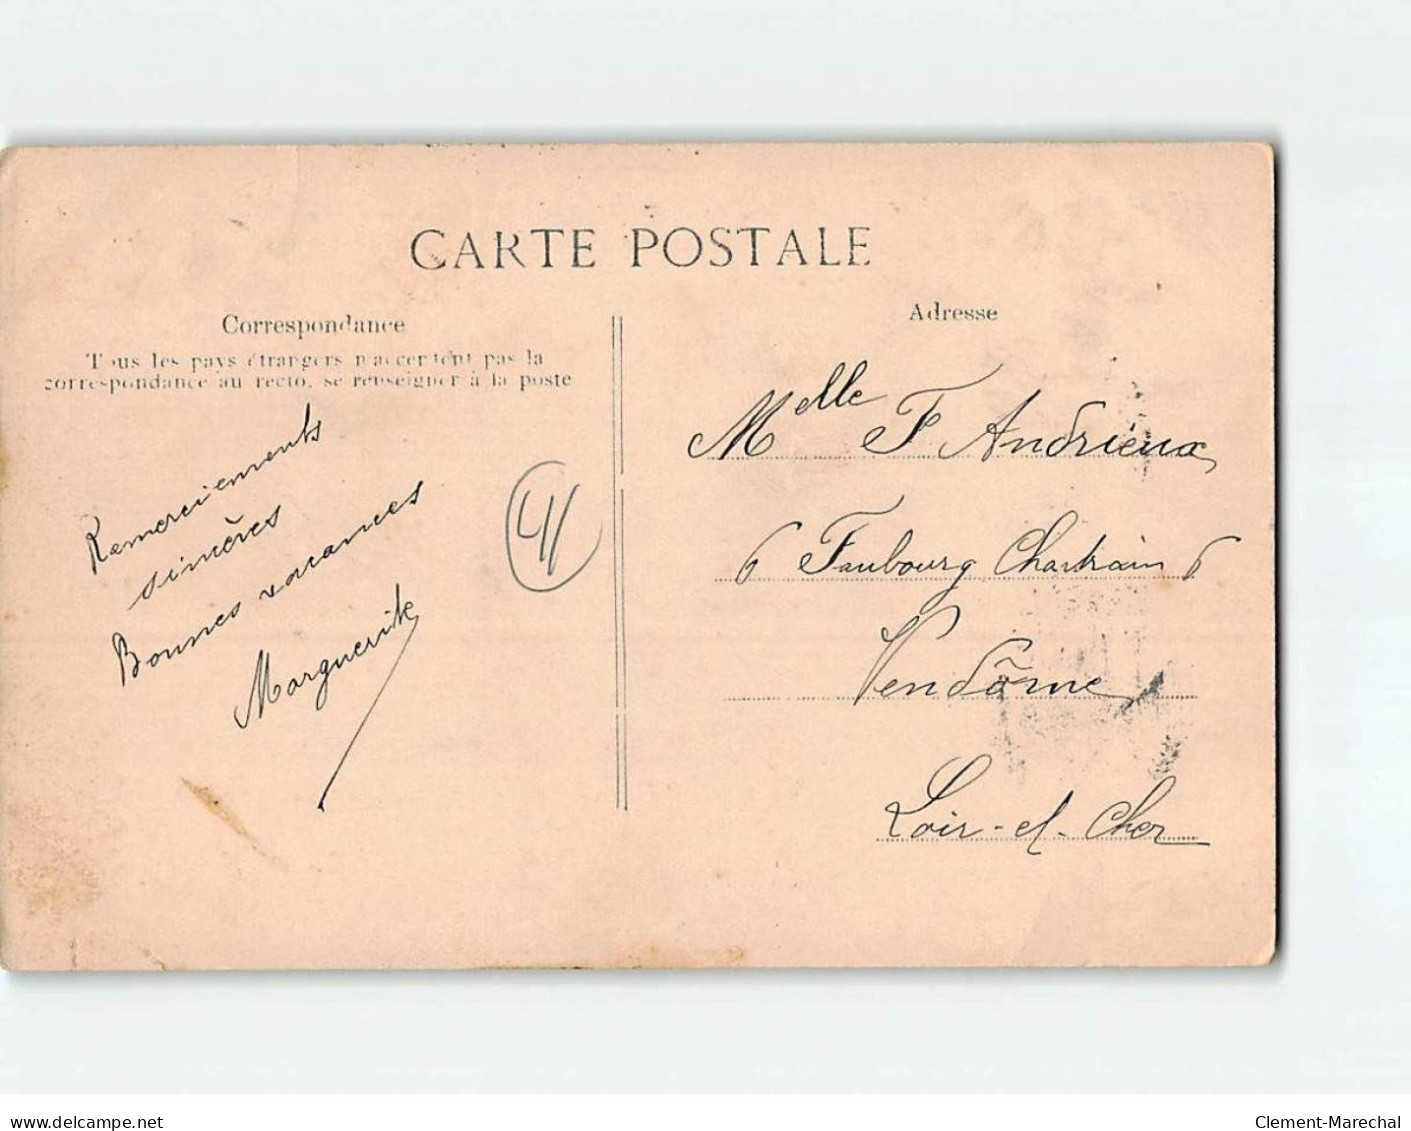 CARTE POSTALE
Correspondance
Tous les pays étrangers n'acceptent pas la
correspondance au recto, se renseigner à la poste
Remerciements
sincères
Bonnes vacances
Marguerite
Adresse
Melle F Andrieux
6 Faubourg Chartrain 6
Vendôme
Loir-et-Cher
www.delcampe.net
Clement-Marechal